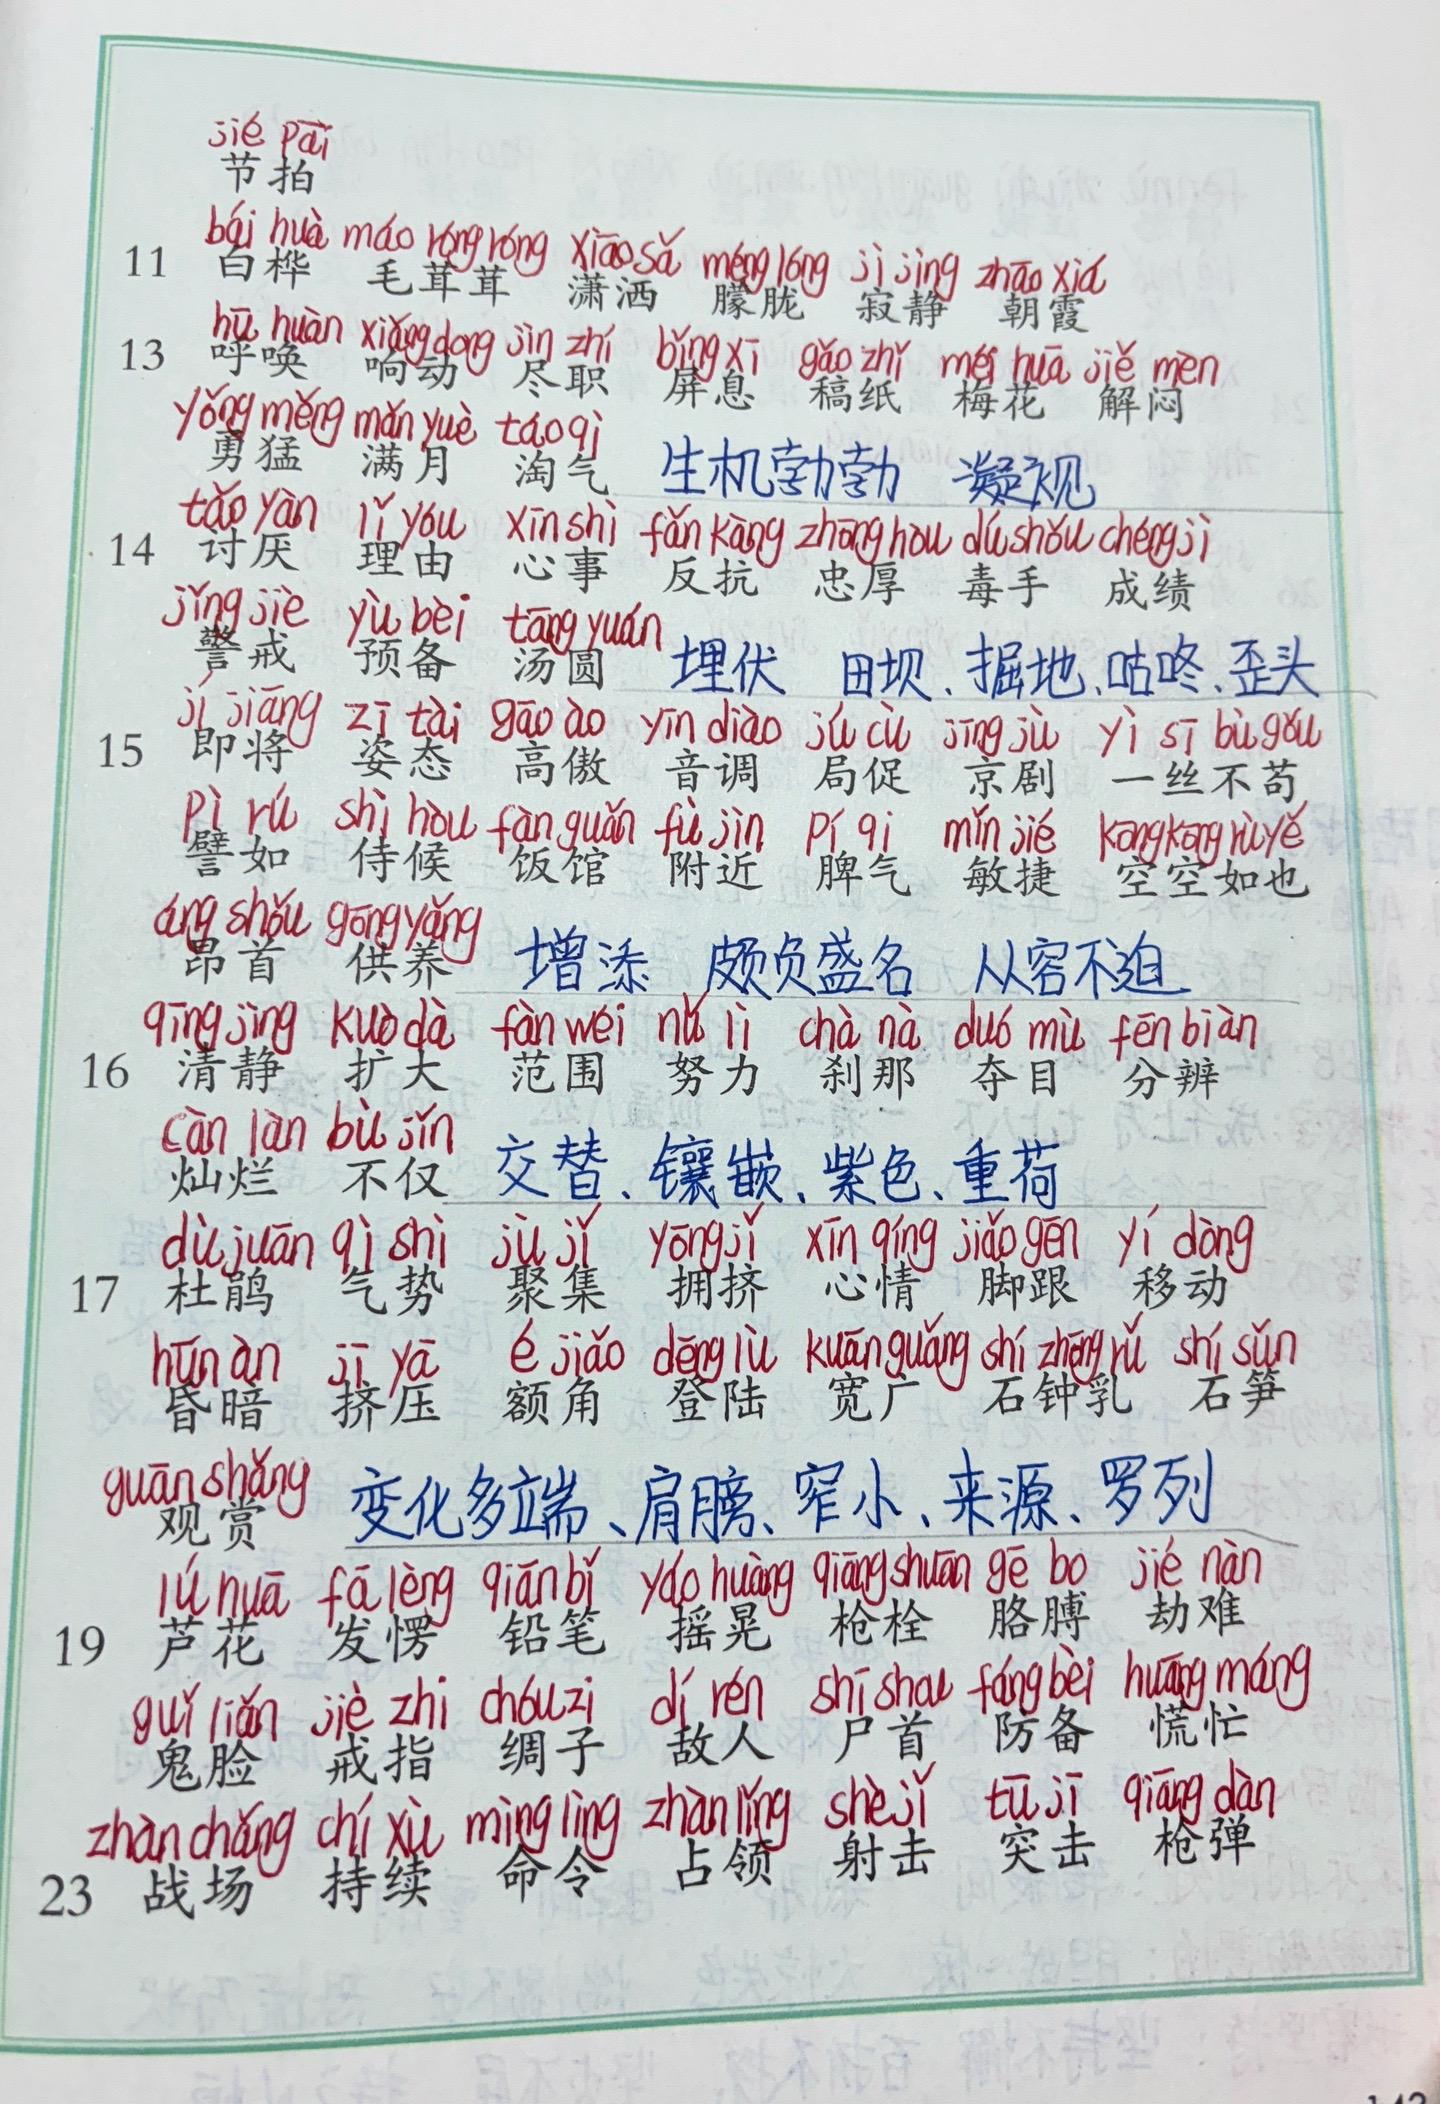 jié pāi
节拍
bái huà máo róng róng xiāo sǎ méng lóng jì jìng zhāo xiá
11 白桦 毛茸茸 潇洒 朦胧 寂静 朝霞
hū huàn xiǎng dong jìn zhí bǐng xī gǎo zhǐ méi huā jiě mèn
13 呼唤 响动 尽职 屏息 稿纸 梅花 解闷
yǒng měng mǎn yuè táo qì
勇猛 满月 淘气 生机勃勃 凝视
tǎo yàn lǐ yóu xīn shì fǎn kàng zhōng hòu dú shǒu chéng jì
14 讨厌 理由 心事 反抗 忠厚 毒手 成绩
jǐng jiè yù bèi tāng yuán
警戒 预备 汤圆 埋伏 田坝、掘地、咕咚、歪头
jí jiāng zī tài gāo ào yīn diào jú cù jīng jù yì sī bù gǒu
15 即将 姿态 高傲 音调 局促 京剧 一丝不苟
pì rú shì hòu fàn guǎn fù jìn pí qi mǐn jié kōng kōng rú yě
譬如 侍候 饭馆 附近 脾气 敏捷 空空如也
áng shǒu gōng yǎng
昂首 供养 增添 颇负盛名 从容不迫
qīng jìng kuò dà fàn wéi nǔ lì chà nà duó mù fēn biàn
16 清静 扩大 范围 努力 刹那 夺目 分辨
càn làn bù jǐn
灿烂 不仅 交替、镶嵌、紫色、重荷
dù juān qì shì jù jí yōng jǐ xīn qíng jiǎo gēn yí dòng
17 杜鹃 气势 聚集 拥挤 心情 脚跟 移动
hūn àn jǐ yā é jiǎo dēng lù kuān guǎng shí zhōng rǔ shí sǔn
昏暗 挤压 额角 登陆 宽广 石钟乳 石笋
guān shǎng
观赏 变化多端、肩膀、窄小、来源、罗列
lú huā fā lèng qiān bǐ yáo huàng qiāng shuān gē bo jié nàn
19 芦花 发愣 铅笔 摇晃 枪栓 胳膊 劫难
guǐ liǎn jiè zhi chóu zi dí rén shī shou fáng bèi huāng máng
鬼脸 戒指 绸子 敌人 尸首 防备 慌忙
zhàn chǎng chí xù mìng lìng zhàn lǐng shè jī tū jī qiāng dàn
23 战场 持续 命令 占领 射击 突击 枪弹